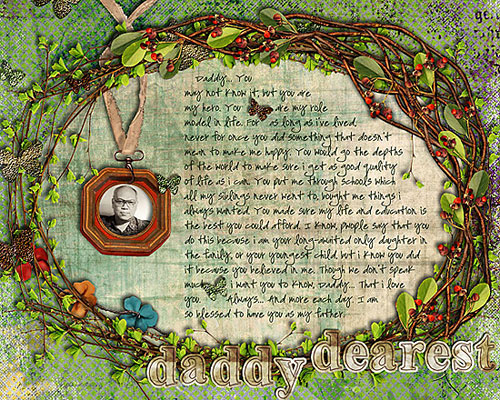 Daddy... You
may not know it, but you are
my hero. You are my role
model in life. For as long as i've lived,
never for once you did something that doesn't
mean to make me happy. You would go the depths
of the world to make sure i get as good quality
of life as i can. You put me through schools which
all my siblings never went to, bought me things i
always wanted. You made sure my life and education is
the best you could afford. I know, people say that you
do this because i am your long-awaited only daughter in
the family, or your youngest child but i know you did
it because you believed in me. Though we don't speak
much, i want you to know, Daddy... That i love
you. Always... And more each day. I am
so blessed to have you as my father.
daddy dearest